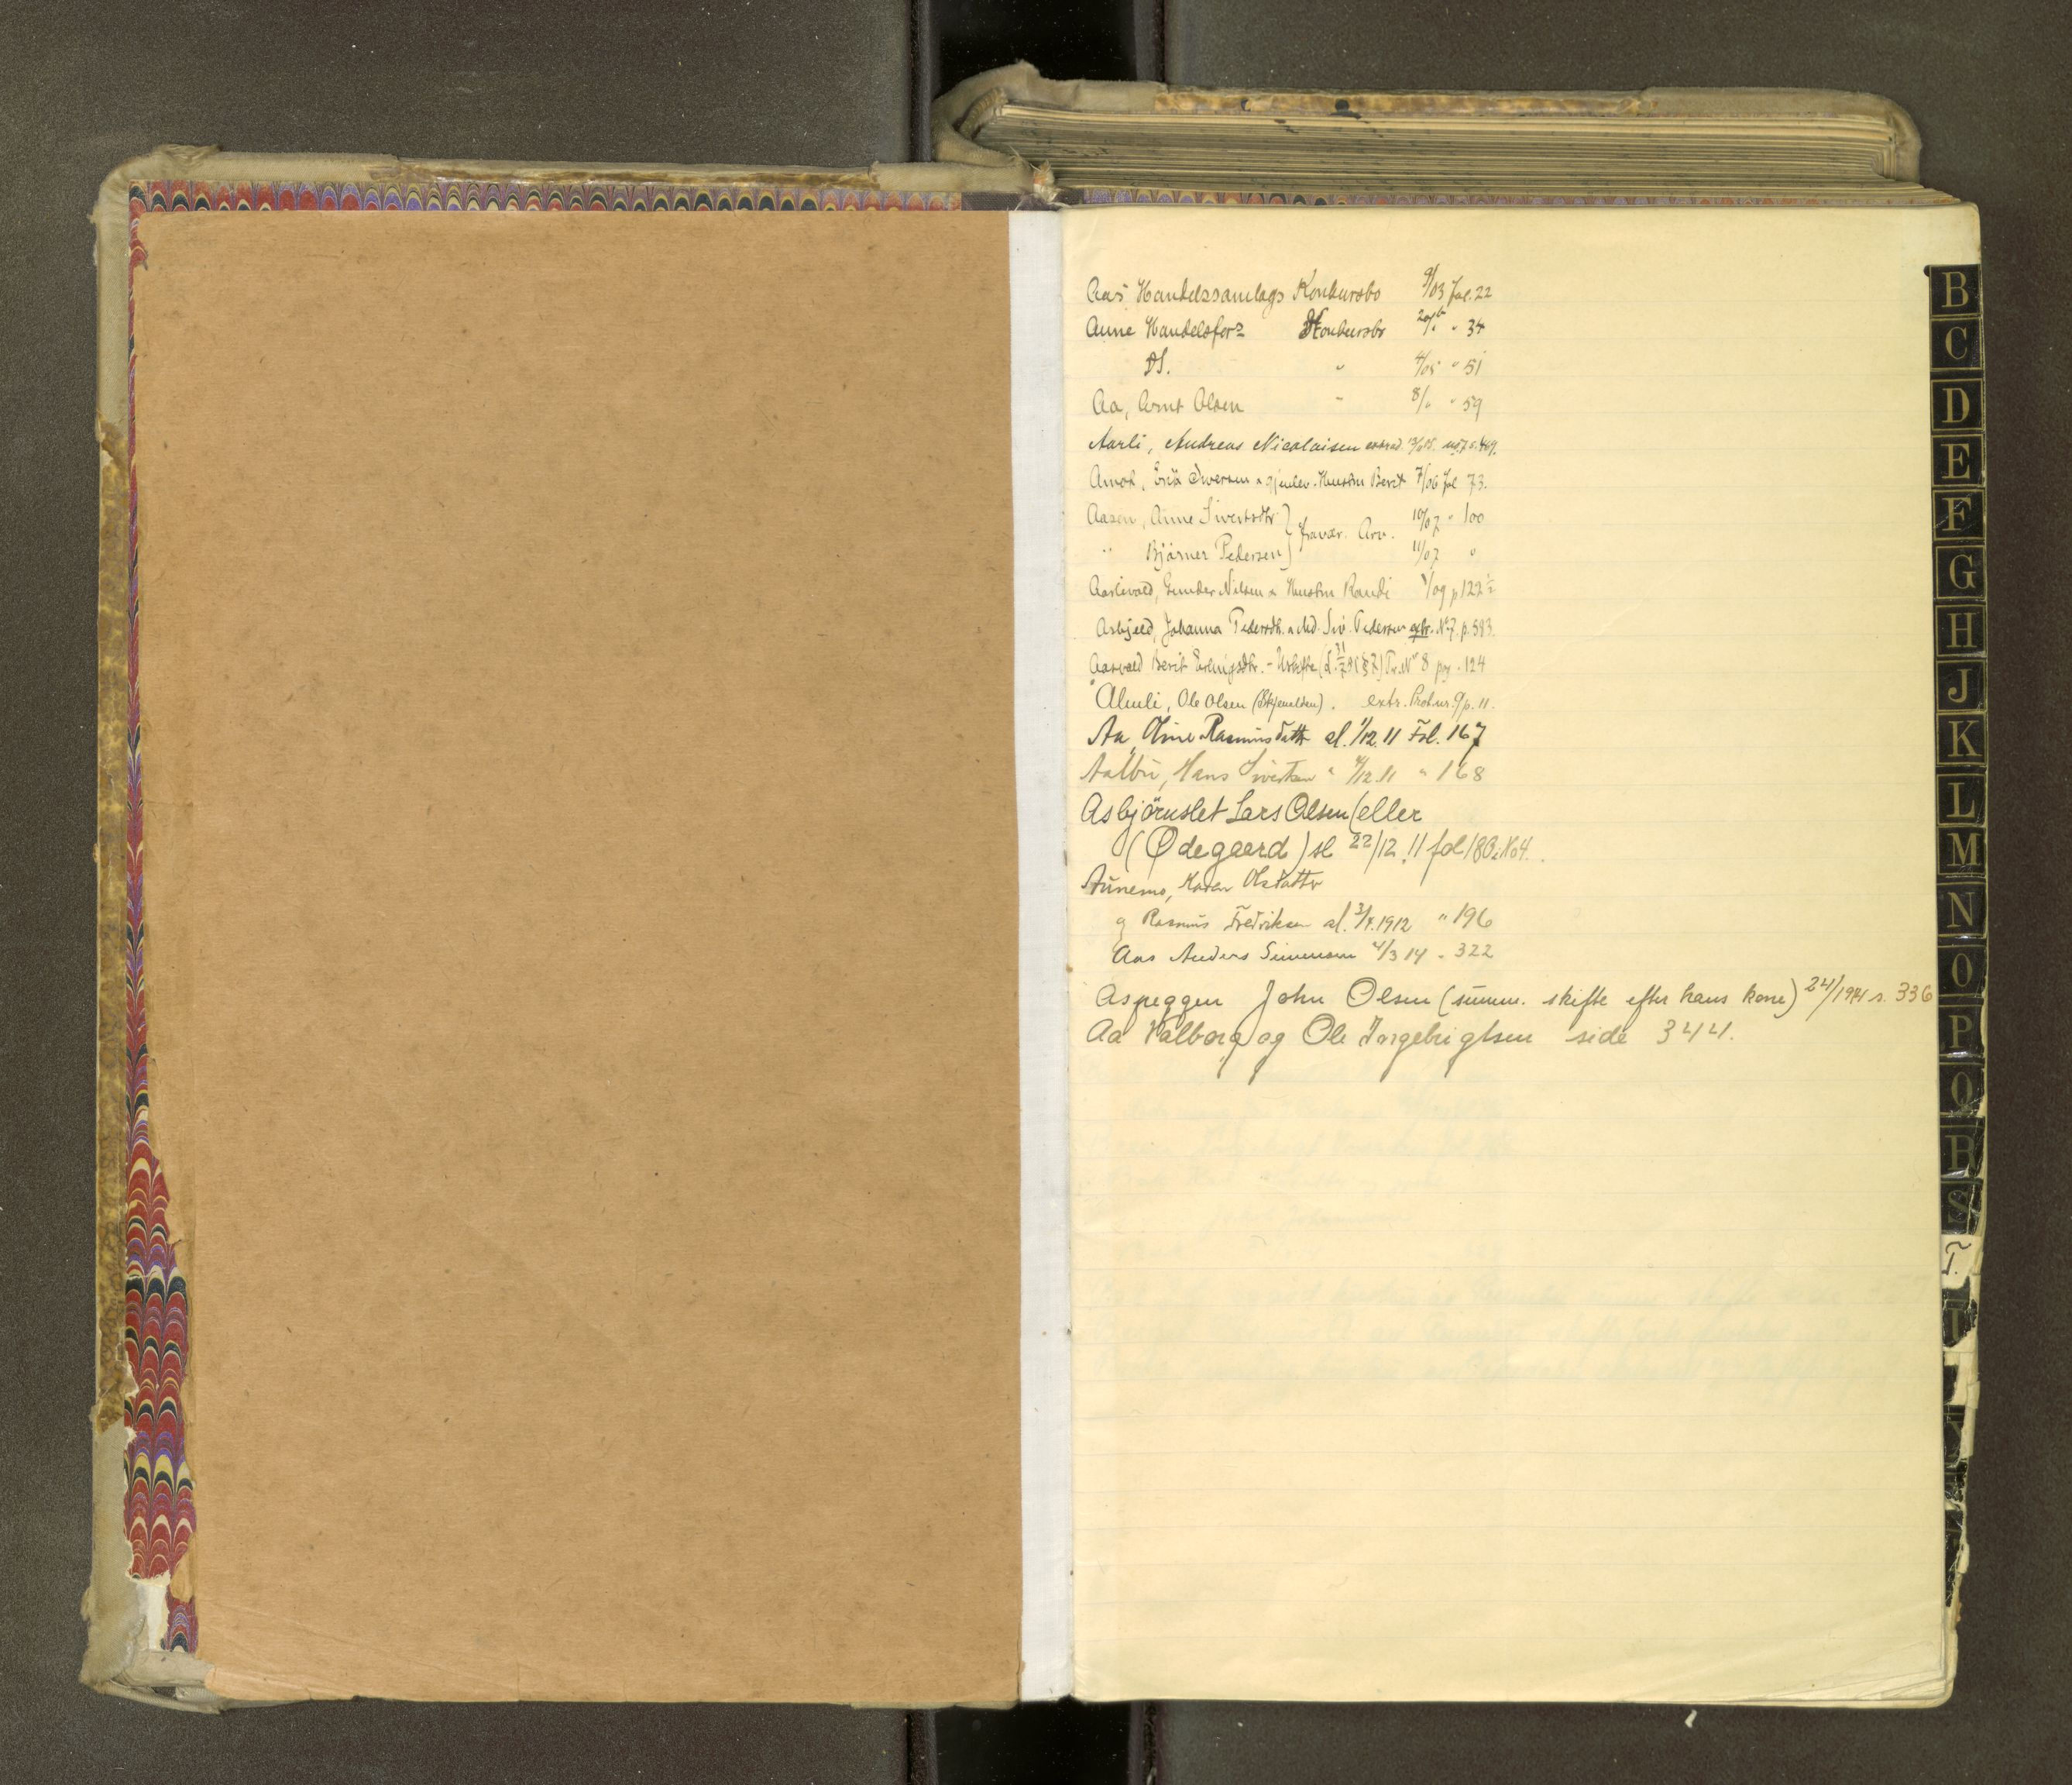 Aas Handelssamlags Konkursbo 9/03 fol. 22
Aune Handelsfor= Konkursbo " 34
DS. " 4/05 " 51
Aa, Arnt Olsen " 8/" " 59
Aarli, Andreas Nicolaisen extrad.
Amot, Erik Iversen & gjenlev. Hustru Berit 7/06 fol 73.
Aasen, Anne Sivertsdtr } fravær. Arv. 10/07 " 100
" Bjørner Pedersen } 11/07 "
Aarlivold, Gunder Nilsen & Hustru Randi /09 p 122½
Asbjeld, Johanna Pedersdtr. Siv. Pedersen extr. N 7. p. 593.
Aasvold Berit Erlingsdtr. - 8 pag. 124
Almli, Ole Olsen (Skjenalden). extr. Prot. nr. 9 p. 11.
Aa, Oline Rasmusdattr sl. 1/12.11 Fol. 167
Aalbu, Hans Sivertsen " 4/12.11 " 168
Asbjørnslet Lars Olsen (eller
(Ødegaard) sl 22/12.11 fol 180, No 4.
Aunemo, Maren Olsdattr
g Rasmus Fredriksen sl. 3/4.1912 " 196
Aas Anders Simensen 4/3 14 " 322
Aspeggen John Olsen (summ. skifte efter hans kone) 24/1914 s. 336
Aa Valborg og Ole Ingebrigtsen side 344.
B
C
D
E
F
G
H
J
K
L
M
N
O
P
Q
R
S
T.